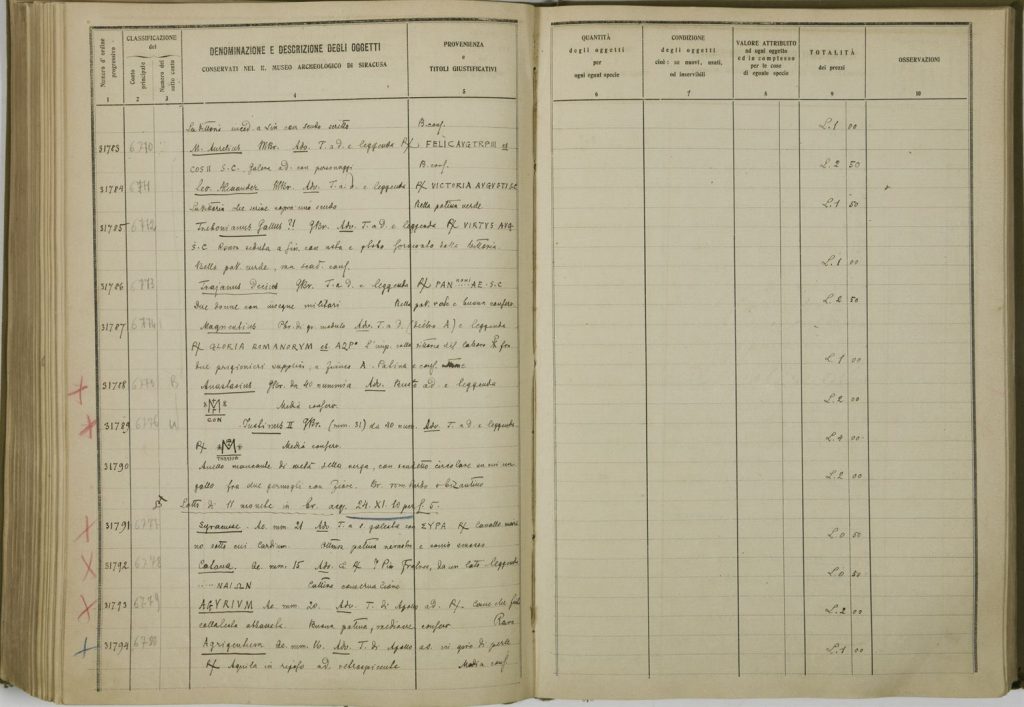 Numero d'ordine progressivo
CLASSIFICAZIONE
dei
Conto principale
Numero del sotto conto
DENOMINAZIONE E DESCRIZIONE DEGLI OGGETTI
CONSERVATI NEL R. MUSEO ARCHEOLOGICO DI SIRACUSA
PROVENIENZA
e
TITOLI GIUSTIFICATIVI
QUANTITÀ
degli oggetti
per
ogni egual specie
CONDIZIONE
degli oggetti
cioè: se nuovi, usati,
od inservibili
VALORE ATTRIBUITO
ad ogni oggetto
ed in complesso
per le cose
di eguale specie
TOTALITÀ
dei prezzi
OSSERVAZIONI
1 2 3 4 5 6 7 8 9 10
La Vittoria a sin con scudo scritto B. conf. L. 1 00
31783 6770 M. Aurelius MBr. Adv. T. a d. e leggenda R/ FELIC AVG TR P III et
COS II S.C. Galera ad. con personaggi B. conf. L. 2 50
31784 6771 Sev. Alexander MBr. Adv. T. a d. e leggenda R/ VICTORIA AVGVSTI S.C
La Vittoria che scrive sopra uno scudo Bella patina verde L. 1 50
31785 6772 Trebonianus Gallus ?! GBr. Adv. T. a d. e leggenda R/ VIRTVS AVG
S.C Roma seduta a sin. con asta e globo dalla Vittoria.
Bella pat. verde, ma conf. L. 1 00
31786 6773 Trajanus Decius GBr. T. a d. e leggenda R/ PANNONIAE S.C
Due donne con insegne militari Bella pat. verde e buona conserv. L. 2 50
31787 6774 Magnentius Pbr. di gr. modulo Adv. T. a d. (dietro A) e leggenda
R/ GLORIA ROMANORVM et AQP L'imp. col labaro fra
due prigionieri supplici, e A. Patina e conf. L. 1 00
31788 6775 B Anastasius GBr. da 40 nummia Adv. Busto ad. e leggenda
* M * CON Media conserv. L. 2 00
31789 6776 Justinus II GBr. (mm. 31) da 40 num. Adv. T. a d. e leggenda
R/ * M * Media conserv. L. 4 00
31790 Anello mancante di metà della verga, con castone circolare
gallo fra due germogli con Br. romano o bizantino L. 2 00
Lotto di 11 monete in br. acq. 24. XI. 10 per £. 5.
31791 6777 Syracusae. Ae. mm. 21 Adv. T. a s galeata con ΣΥΡΑ R/ Cavallo mari
no sotto cui Cardium. Ottima patina nerastra e conio sincero L. 0 50
31792 6778 Catana. Ae. mm. 15 Adv. R/ ? Pii Fratres, da un lato leggenda
..... ΝΑΙΩΝ Cattiva conservazione L. 0 50
31793 6779 AGYRIVM Ae. mm. 20. Adv. T. di Apollo ad. R/ Cane che
Buona patina, mediocre conserv. Rara L. 2 00
31794 6780 Agrigentum Ae. mm. 16. Adv. T. di Apollo ad. in giro di perle
R/ Aquila in riposo ad. retrospiciente Media conf. L. 1 00